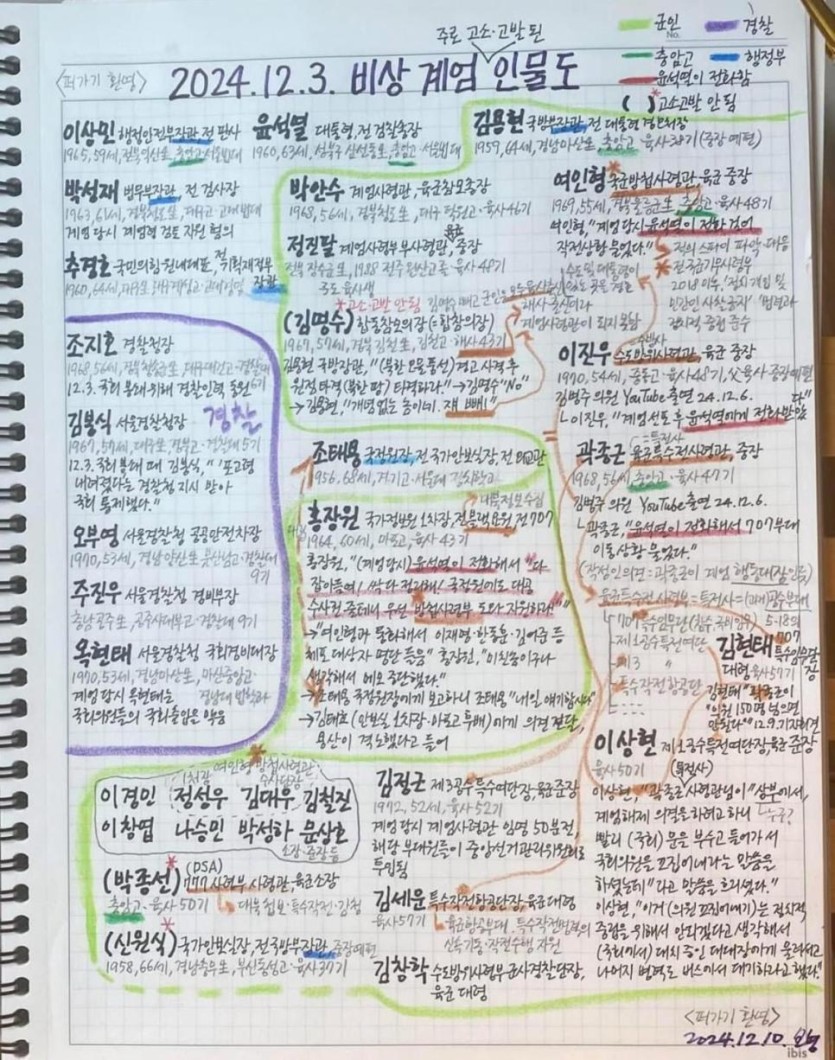 주로 고소·고발된
군인
경찰
No.
충암고
행정부
윤석열이 전화함
( )* 고소고발 안 됨
<퍼가기 환영>
2024.12.3. 비상 계엄 인물도
이상민 행정안전부장관, 전 판사
1965, 59세, 전북익산生, 충암고·서울법대
윤석열 대통령, 전 검찰총장
1960, 63세, 성북구 삼선동生, 충암고·서울법대
김용현 국방부장관, 전 대통령 경호처장
1959, 64세, 경남마산生, 충암고·육사38기 (중장 예편)
박성재 법무부장관, 전 검사장
1963, 61세, 경북청도生, 대구고·고대법대
계엄 당시 계엄령 검토 자원 혐의
추경호 국민의힘 원내대표, 전 기획재정부
장관
박안수 계엄사령관, 육군참모총장
1968, 56세, 경북청도生, 대구 덕원고·육사46기
정진팔 계엄사령부 부사령관, 육군 중장
*고소고발 안 됨
(김명수) 합동참모의장(=합참의장)
1967, 57세, 경북 김천生, 김천고·해사 43기
김용현 국방장관, "(북한 오물풍선) 경고 사격 후
원점 타격(북한 땅) 타격하라." → 김명수 "No"
→ 김용현, "개념 없는 놈이네. 쟤 빼!"
해사 출신이라
계엄사령관이 되지 못함
여인형 국군방첩사령관, 육군 중장
1969, 55세, 경북울릉군生, 충암고·육사48기
여인형, "계엄 당시 윤석열이 전화 걸어
작전상황 물었다."
군내 스파이 파악·대응
* 전 국군기무사령부
2018 이후, '정치 개입 및
민간인 사찰금지' '법령과
정치적 중립 준수
이진우 수도방위사령관, 육군 중장
김병주 의원 YouTube 출연 24.12.6.
└ 이진우, "계엄선포 후 윤석열에게 전화 받았
다"
조지호 경찰청장
1968, 56세, 경북청송生, 대구대건고·경찰대
6기
12.3. 국회 봉쇄 위해 경찰인력 동원
김봉식 서울경찰청장
경찰
1967, 57세, 대구生, 경북고·경찰대 5기
12.3. 국회 봉쇄 때 김봉식, "'포고령
내려졌다는 경찰청 지시 받아
국회 통제했다."
오부영 서울경찰청 공공안전차장
9기
주진우 서울경찰청 경비부장
충남공주生, 공주사대부고·경찰대 9기
옥현태 서울경찰청 국회경비대장
1970, 53세, 경남마산生, 마산중앙고·
계엄 당시 옥현태는
국회의원들의 국회출입을 막음
조태용 국정원장, 전 국가안보실장, 전 외교관
1956, 68세, 경기고·서울대 정치학과
홍장원 국가정보원 1차장, 전 블랙요원, 전 707
1964, 60세, 마포고, 육사 43기
홍장원, "(계엄 당시) 윤석열이 전화해서 "다
잡아들여! 싹 다 정리해! 국정원에도 대공
수사권 줄테니 우선 방첩사령부 도와 자원하라!""
→ "여인형과 통화해서 이재명·한동훈·김어준 등
체포 대상자 명단 들음" 홍장원, "미친놈이구나
생각해서 메모 중단했다."
→ 조태용 국정원장에게 보고하니 조태용 "내일 얘기합시다"
→ 김태효(안보실 1차장·마포고 후배)에게 의견 전달,
용산이 격노했다고 들어
곽종근 육군특수전사령관, 중장
=특전사
1968, 56세, 충남고·육사 47기
김병주 의원 YouTube 출연 24.12.6.
└ 곽종근, "윤석열이 전화해서 707부대
이동상황 물었다."
(작성인 의견 = 곽종근이 계엄 행동대장인듯)
육군특수전 사령부 = 특전사 = (과거)공수부대
제1공수특전여단
특수작전항공단
김현태 707
특수임무단
장
대령·육사57기
김현태 "곽종근이
인원 150명 넘으면
안된다" 12.9.기자회견
이상현 제1공수특전여단장, 육군 준장
육사50기 (특전사)
이상현, "곽종근 사령관님이 "상부에서,
계엄해제 의결을 하려고 하니
누구?
빨리 (국회) 문을 부수고 들어가서
국회의원을 끄집어내라는 말씀을
하셨는데" 라고 말씀을 흐리셨다."
이상현, "이거 (의원 끄집어내기)는 정치적
중립을 위해서 안되겠다고 생각해서
(국회에서) 대치 중인 대대장에게 물러서고
나머지 병력도 버스에서 대기하라고 했다."
여인형 방첩사령관·
이경민 정성우 김대우 김철진
이창엽 나승민 박성하 문상호
소장·준장 등
(박종선)* (DSA) 777 사령부 사령관, 육군소장
충암고·육사 50기
대북첩보·특수작전·감청
(신원식)* 국가안보실장, 전 국방부장관, 중장예편
1958, 66세, 경남통영生, 부산동성고·육사37기
김정근 제3공수특수여단장, 육군준장
1972, 52세, 육사52기
계엄 당시 계엄사령관 임명 50분전,
해당 부대원들이 중앙선거관리위원회로
투입됨
김세운 특수작전항공단장, 육군 대령
육사57기
육군항공부대. 특수작전병력의
신속기동·작전수행 자원
김창학 수도방위사령부 군사경찰단장,
육군 대령
<퍼가기 환영>
2024.12.10.
ibis